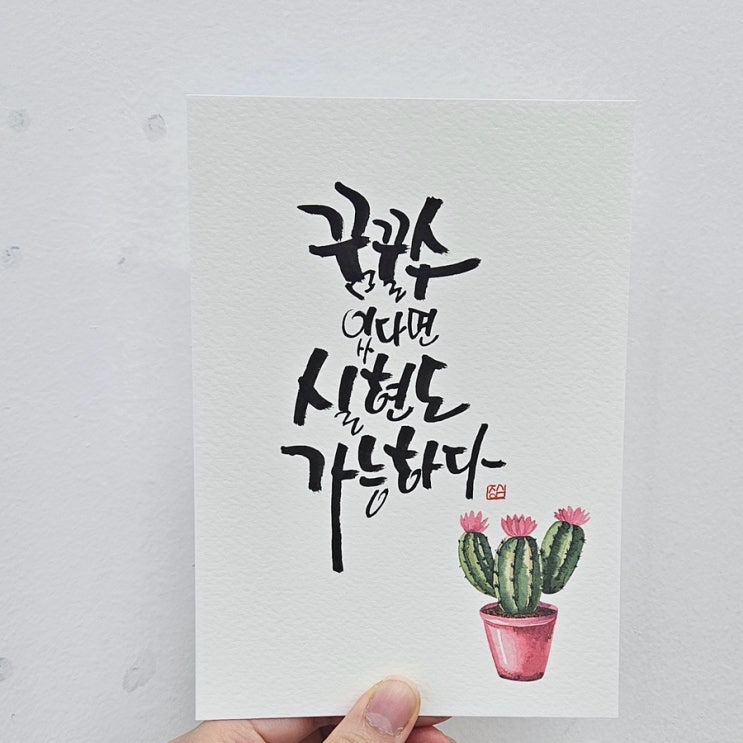 꿈꿀수
있다면
실현도
가능하다